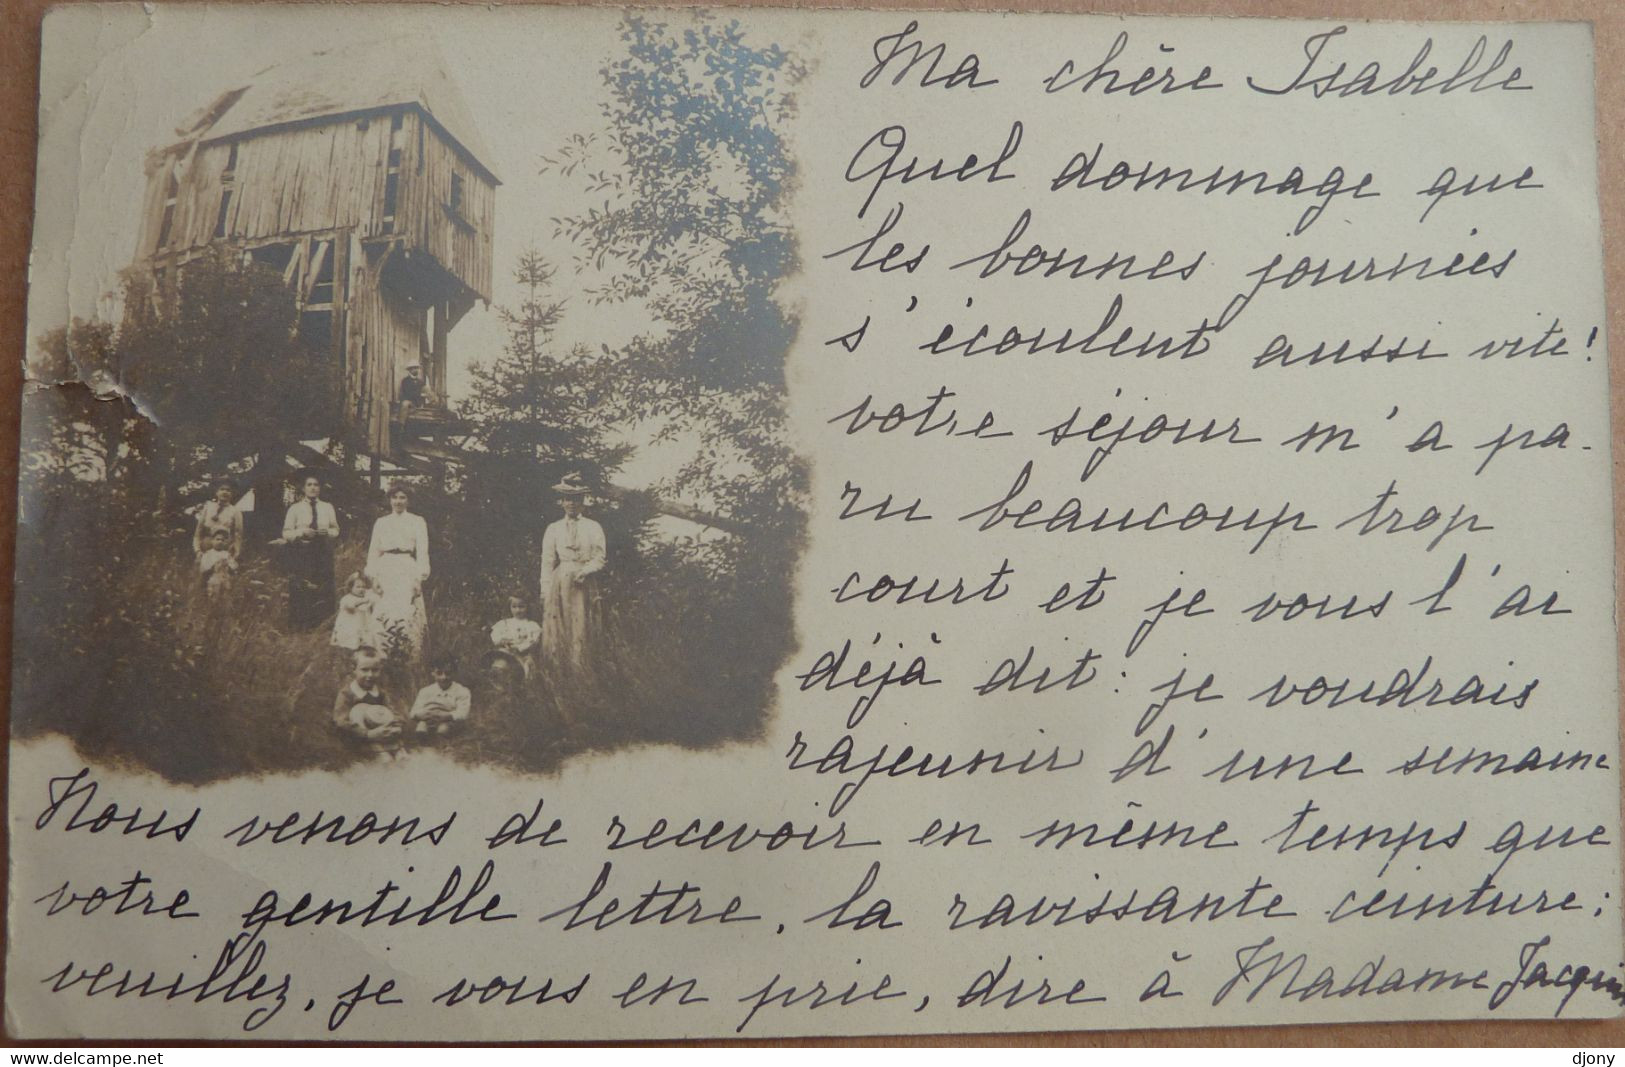 Ma chère Isabelle
Quel dommage que
les bonnes journées
s'écoulent aussi vite!
votre séjour m'a pa-
ru beaucoup trop
court et je vous l'ai
déjà dit: je voudrais
rajeunir d'une semaine
Nous venons de recevoir en même temps que
votre gentille lettre, la ravissante ceinture;
veuillez, je vous en prie, dire à Madame Jacquin
www.delcampe.net
djony